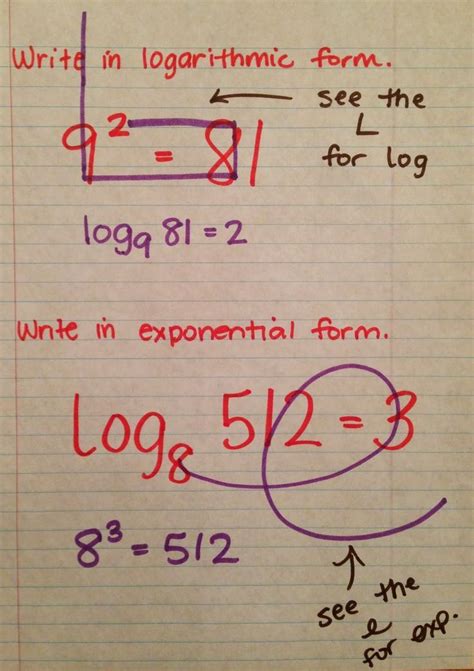 Write in logarithmic form.
see the
L
for log
9² = 81
log₉ 81 = 2
Write in exponential form.
log₈ 512 = 3
8³ = 512
see the
e
for exp.